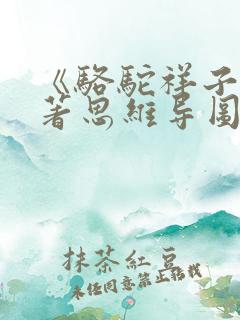 《駱駝祥子
著思維导圖
抹茶紅豆
未任同意禁止轉載